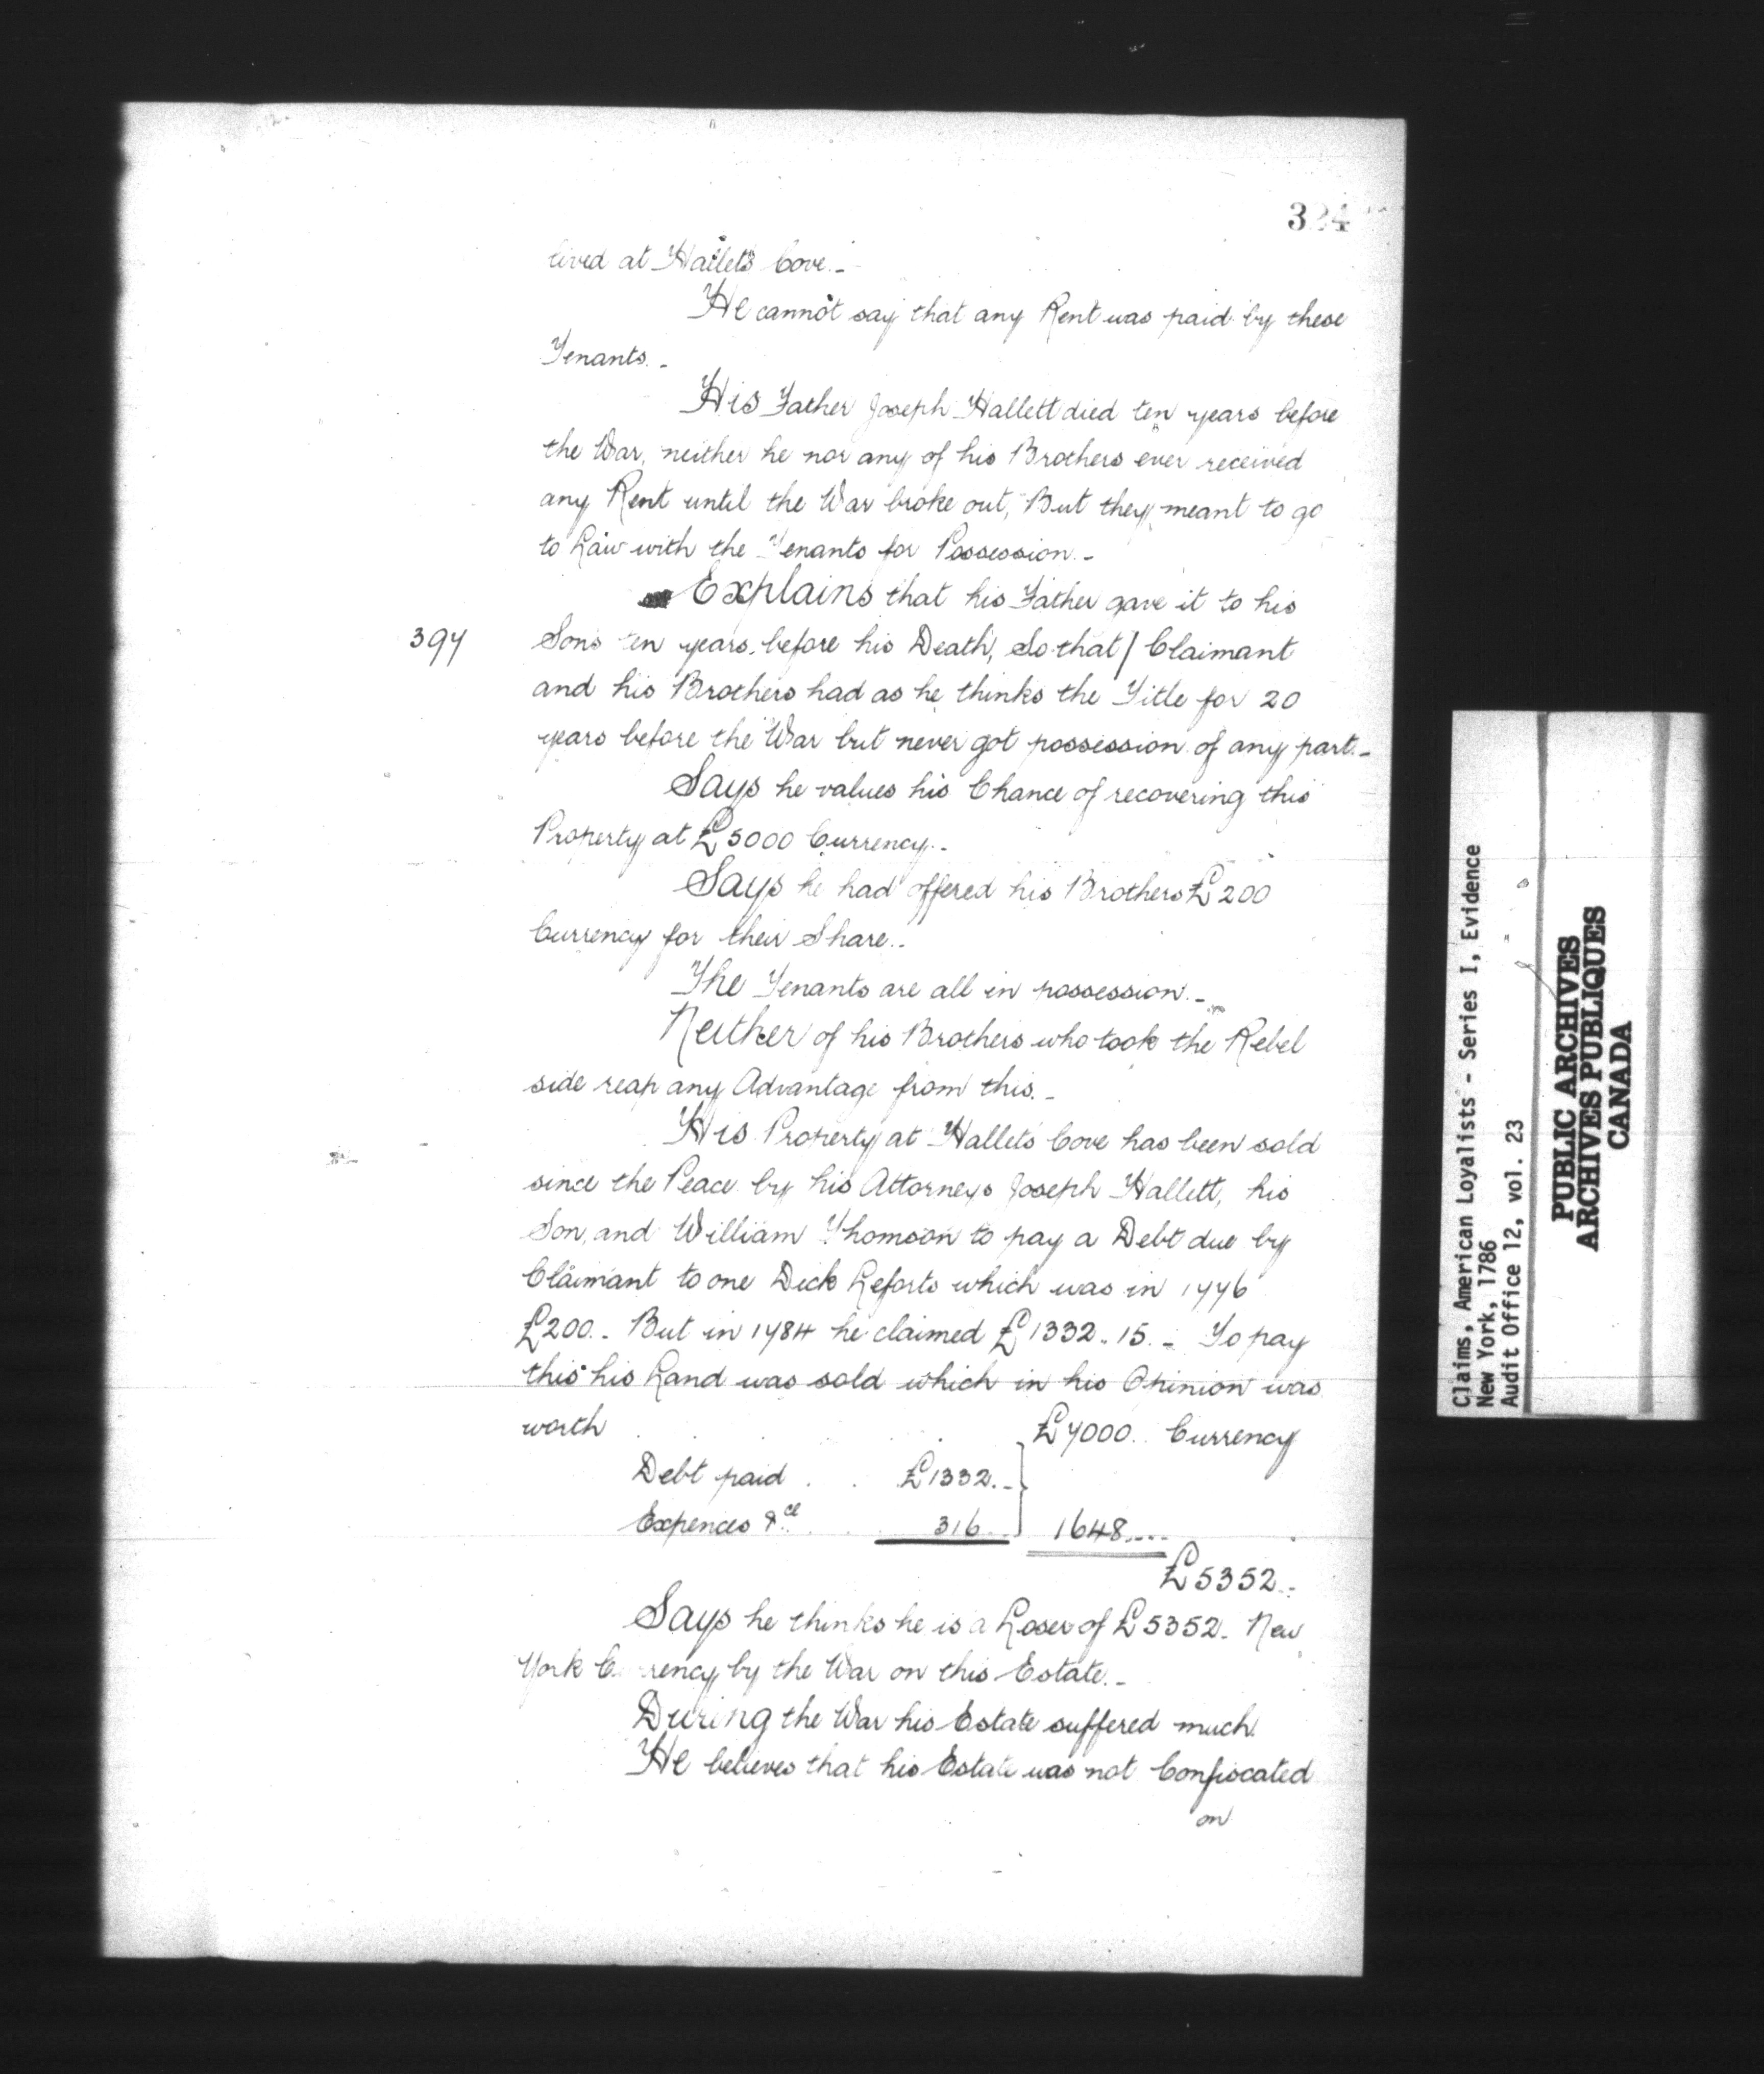 324
lived at Hallets Cove.-
He cannot say that any Rent was paid by these
Tenants.-
His Father Joseph Hallett died ten years before
the War, neither he nor any of his Brothers ever received
any Rent until the War broke out, But they meant to go
to Law with the Tenants for Possession.-
Explains that his Father gave it to his
397 Sons ten years before his Death, So that / Claimant
and his Brothers had as he thinks the Title for 20
years before the War but never got possession of any part.-
Says he values his Chance of recovering this
Property at £5000 Currency.-
Says he had offered his Brothers £200
Currency for their Share.-
The Tenants are all in possession.-
Neither of his Brothers who took the Rebel
side reap any Advantage from this.-
His Property at Hallets Cove has been sold
since the Peace by his Attorneys Joseph Hallett, his
Son, and William Thomson to pay a Debt due by
Claimant to one Dick Leforts which was in 1776
£200.- But in 1784 he claimed £1332..15.- To pay
this his Land was sold which in his Opinion was
worth £7000.. Currency
Debt paid . . £1332.-
Expences &ce . . 316.. } 1648....
£5352.-
Says he thinks he is a Loser of £5352. New
York Currency by the War on this Estate.-
During the War his Estate suffered much.
He believes that his Estate was not Confiscated
on
Claims, American Loyalists - Series I, Evidence
New York, 1786
Audit Office 12, vol. 23
PUBLIC ARCHIVES
ARCHIVES PUBLIQUES
CANADA